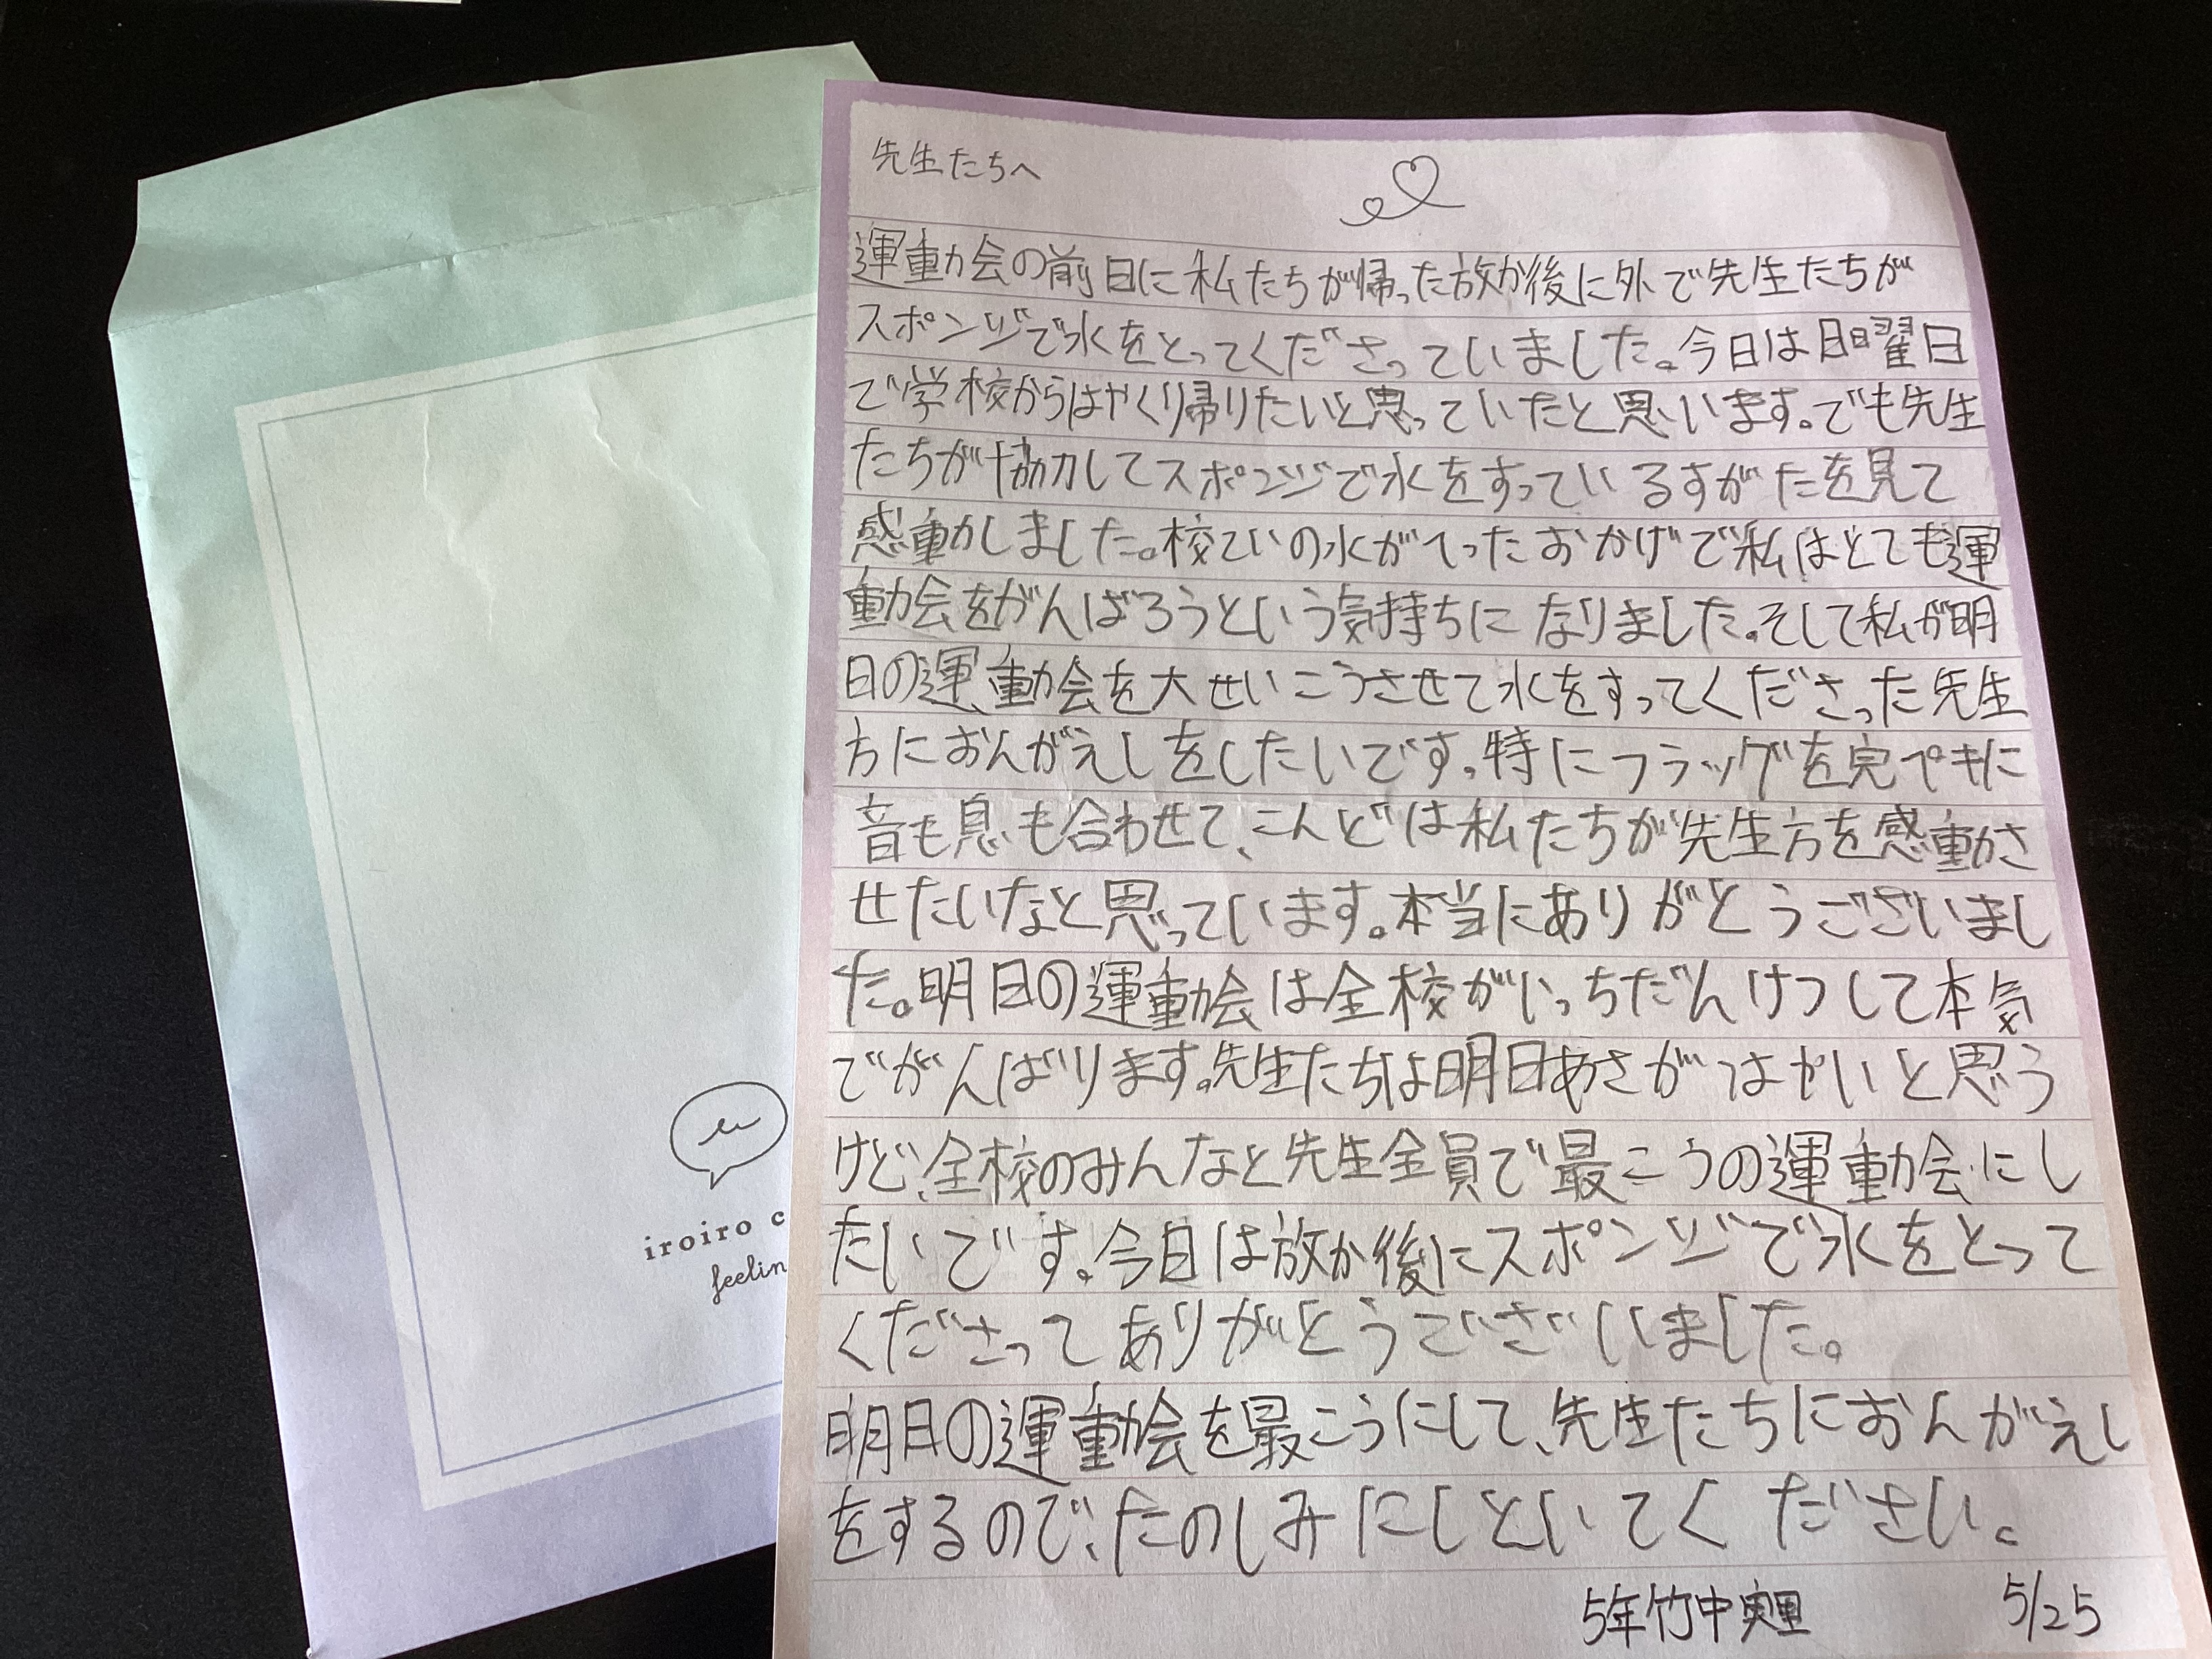 先生たちへ
運動会の前日に私たちが帰った放か後に外で先生たちが
スポンジで水をとってくださっていました。今日は日曜日
で学校からはやくり帰りたいと思っていたと思います。でも先生
たちが協力してスポンジで水をすっているすがたを見て
感動しました。校ていの水がへったおかげで私はとても運
動会をがんばろうという気持ちになりました。そして私が明
日の運動会を大せいこうさせて水をすってくださった先生
方におんがえしをしたいです。特にフラッグを完ペキに
音も息も合わせて、こんどは私たちが先生方を感動さ
せたいなと思っています。本当にありがとうございまし
た。明日の運動会は全校がいっちだんけつして本気
でがんばります。先生たちは明日あさがはやいと思う
けど、全校のみんなと先生全員で最こうの運動会にし
たいです。今日は放か後にスポンジで水をとって
くださってありがとうございました。
明日の運動会を最こうにして、先生たちにおんがえし
をするので、たのしみにしといてください。
5年竹中実里 5/25
iroiro
feelin